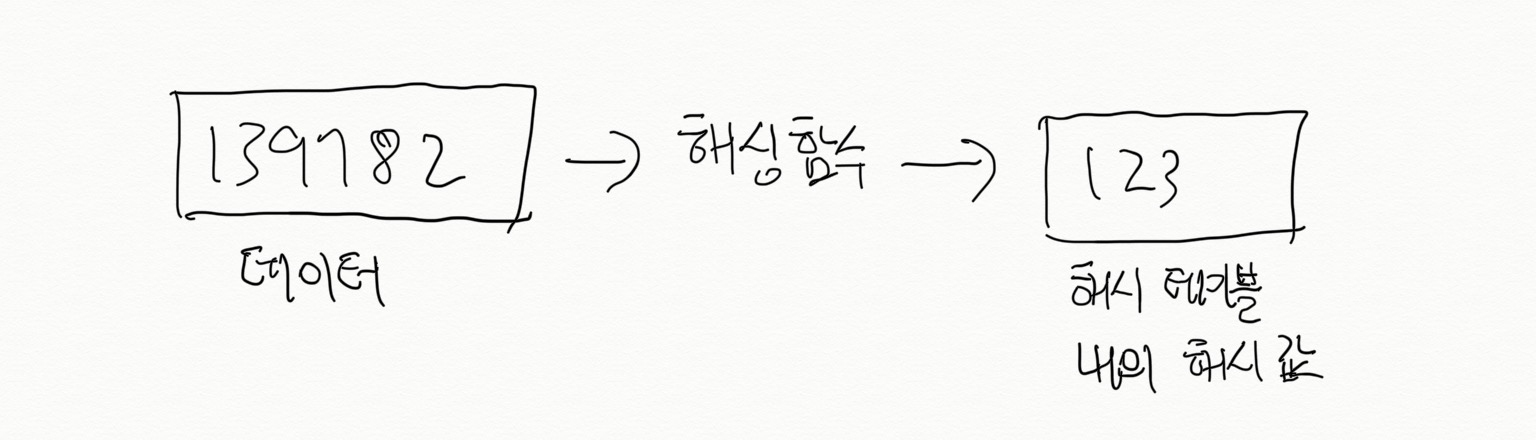 139782
데이터
해싱함수
123
해시 테이블
내의 해시 값